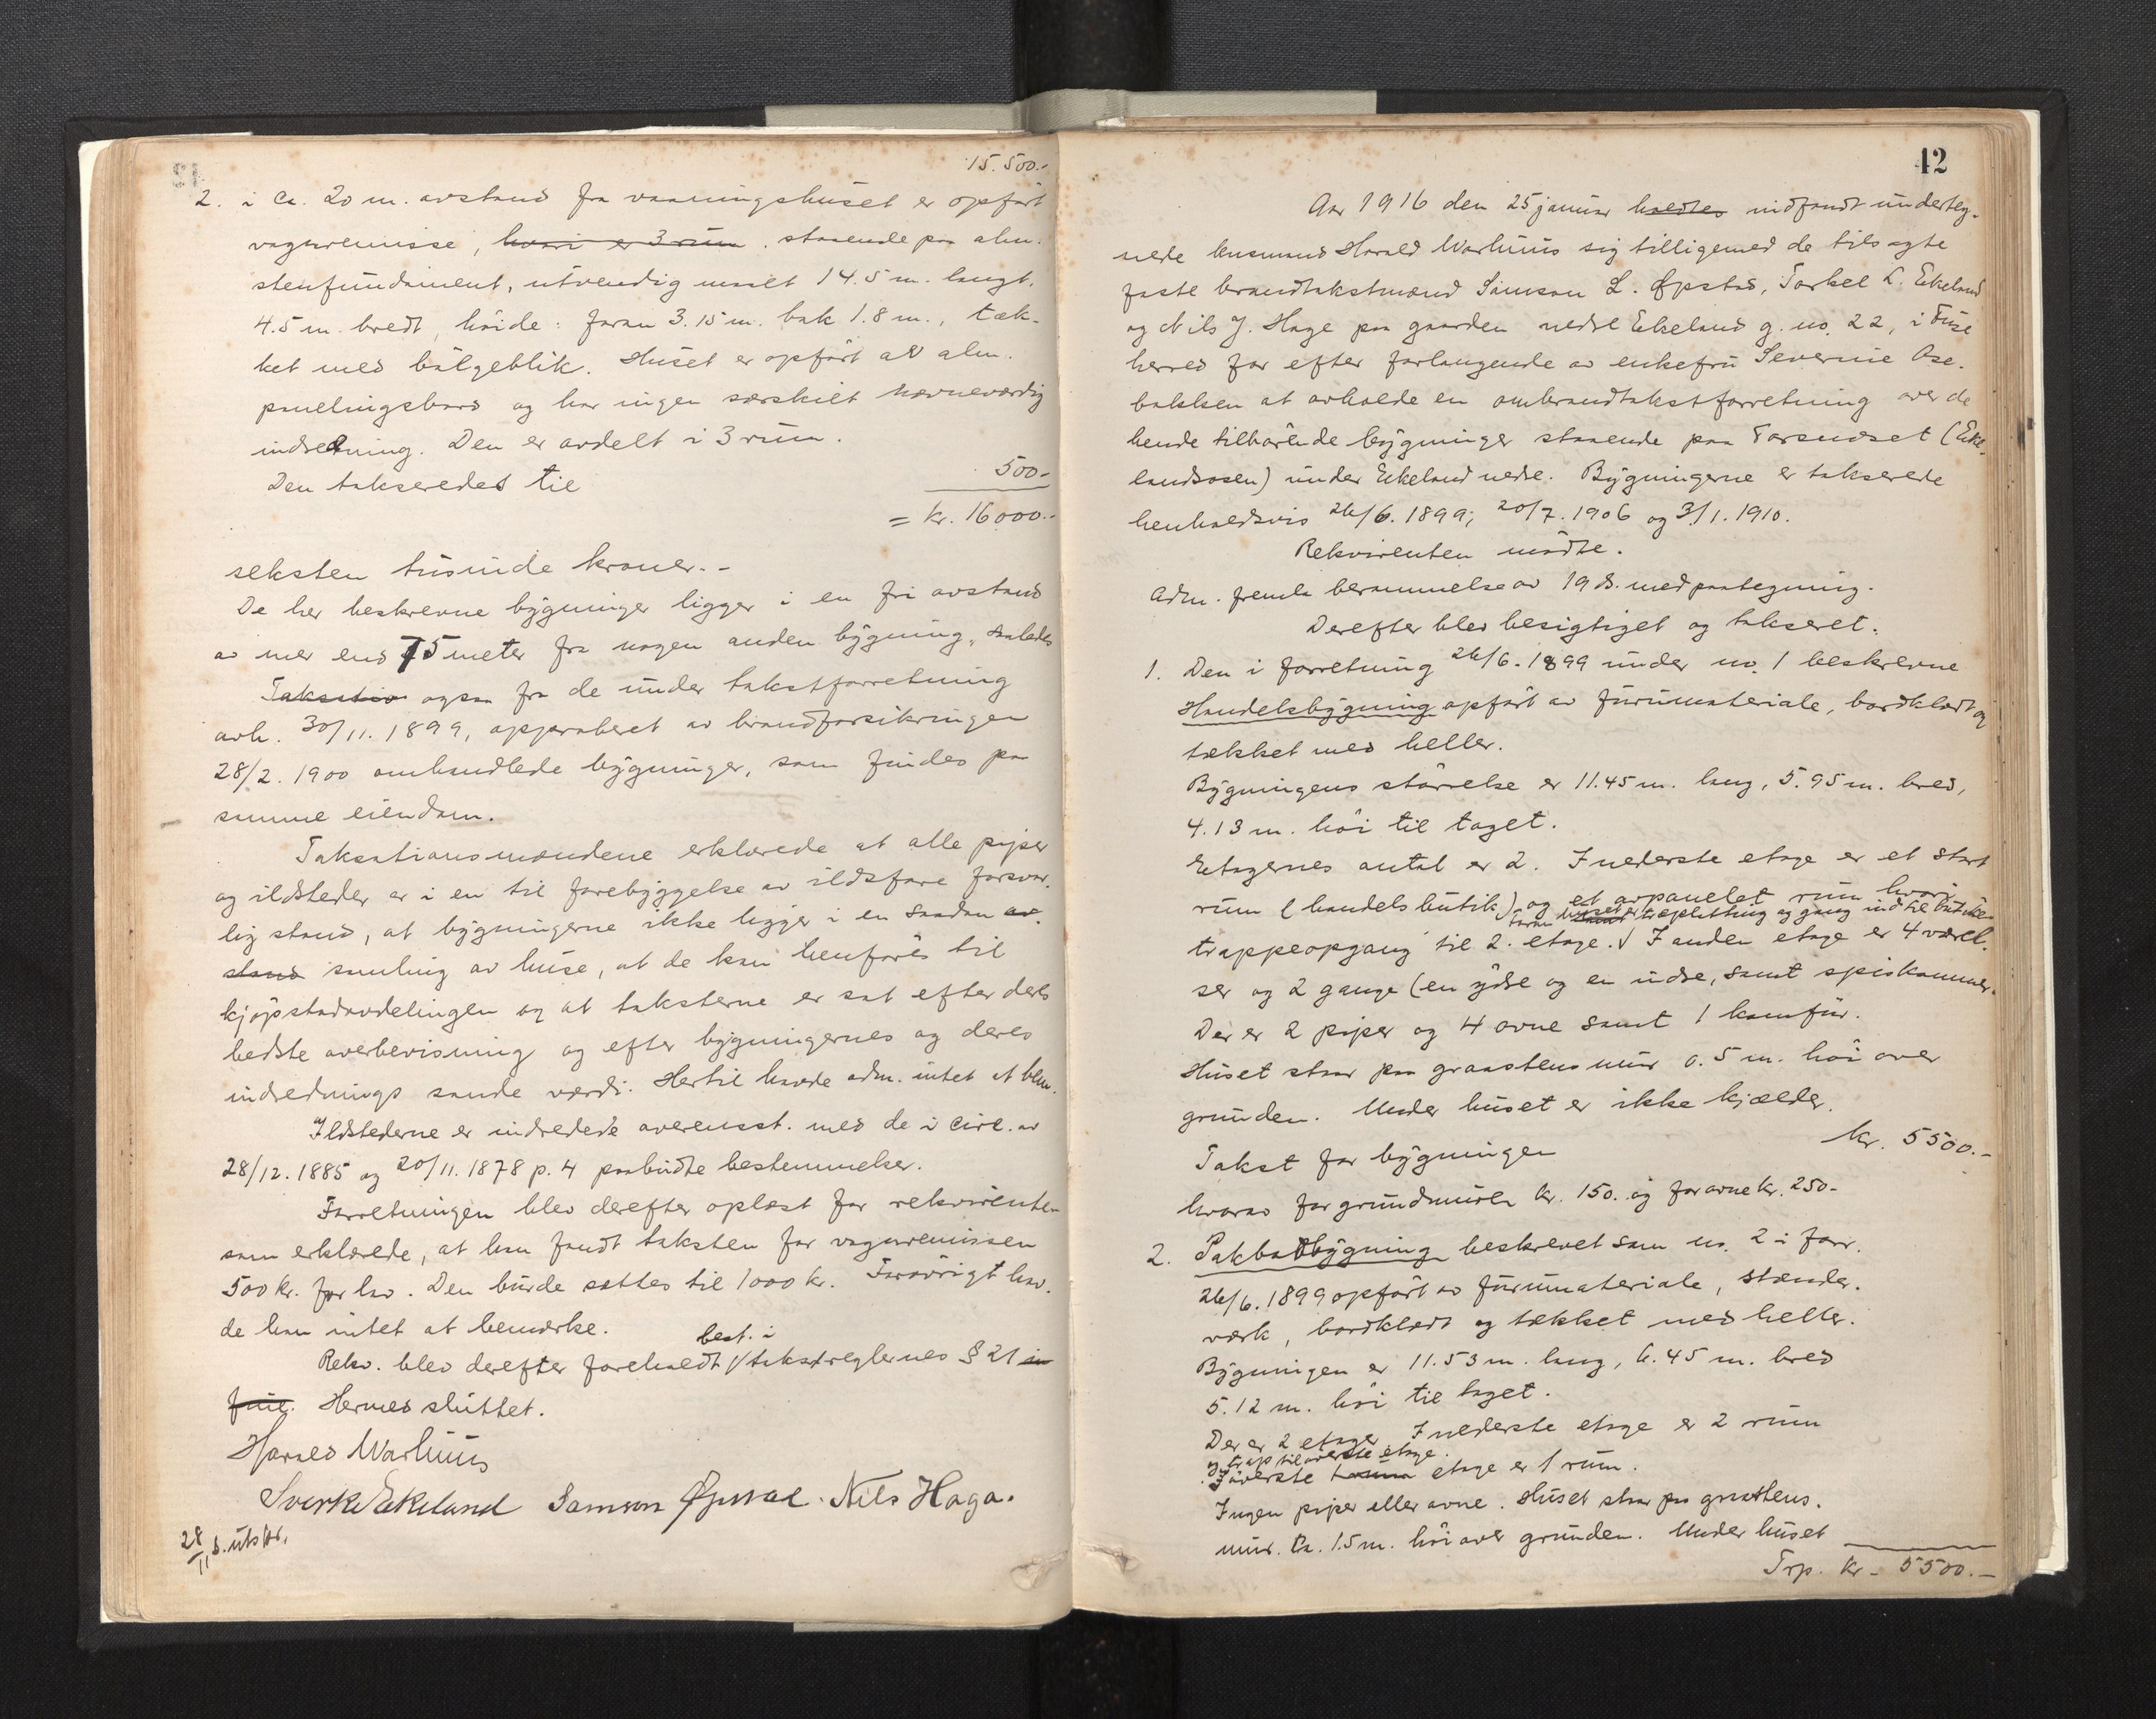 15.500.-
2. i ca. 20 m. avstand fra vaaningshuset er opført
vognremisse, hvori er 3 rum. staaende paa alm.
stenfundament, utvendig maalt 14.5 m. langt.
4.5 m. bredt, høide: foran 3.15 m. bak 1.8 m., tæk-
ket med bølgeblik. Huset er opført av alm.
panelingsbord og har ingen særskilt nævneværdig
indredning. Den er avdelt i 3 rum.
Den takseredes til 500-
= kr. 16000.-
seksten tusinde kroner.-
De her beskrevne bygninger ligger i en fri avstand
av mer end 75 meter fra nogen anden bygning, saaledes
Taksatio ogsaa fra de under takstforretning
avh. 30/11. 1899, approberet av brandforsikringen
28/2. 1900 omhandlede bygninger, som findes paa
samme eiendom.
Taksationsmændene erklærede at alle piper
og ildsteder er i en til forebyggelse av ildsfare forsvar-
lig stand, at bygningerne ikke ligger i en saadan av-
stand samling av huse, at de kan henføres til
kjøpstadavdelingen og at taksterne er sat efter deres
bedste overbevisning og efter bygningernes og deres
indrednings sande værdi. Hertil havde adm. intet at bem.
Ildstederne er indredede overensst. med de i circ. av
28/12. 1885 og 20/11. 1878 p. 4 paabudte bestemmelser.
Forretningen blev derefter oplæst for rekvirenten
som erklærede, at han fandt taksten for vognremissen
500 kr. for lav. Den burde sættes til 1000 kr. Forøvrigt hav-
de han intet at bemærke.
best. i
Rekv. blev derefter foreholdt √ takstreglernes § 21 in
fine. Hermed sluttet.
Harald Warhuus
Sverke Ekeland Samson Øpstad. Nils Haga.
28/11 d. utskr.
42
Aar 1916 den 25 januar holdtes indfandt underteg-
nede lensmand Harald Warhuus sig tilligemed de tilsagte
faste brandtakstmænd Samson L. Øpstad, Torkel L. Ekeland
og Nils J. Hage paa gaarden nedre Ekeland g. no. 22, i Fuse
herred for efter forlangende av enkefru Severine Ose-
bakken at avholde en ombrandtakstforretning over de
hende tilhørende bygninger staaende paa Torsneset (Eke-
landsosen) under Ekeland nedre. Bygningerne er takserede
henholdsvis 26/6. 1899; 20/7. 1906 og 3/1. 1910.
Rekvirenten mødte.
Adm. fremla berammelse av 19 ds. med paategning.
Derefter blev besigtiget og takseret:
1. Den i forretning 26/6. 1899 under no. 1 beskrevne
Handelsbygning opført av furumateriale, bordklædt og
tækket med heller.
Bygningens størrelse er 11.45 m. lang, 5.95 m. bred,
4.13 m. høi til taget.
Etagernes antal er 2. I nederste etage er et stort
rum (handelsbutik) og et avpanelet rum hvori
foran huset er træplatting og gang ind til butikken
trappeopgang til 2. etage. √ I anden etage er 4 værel-
ser og 2 gange (en ydre og en indre, samt spiskammer.
Der er 2 piper og 4 ovne samt 1 komfur.
Huset staar paa graastensmur 0.5 m. høi over
grunden. Under huset er ikke kjælder.
Takst for bygningen kr. 5500.-
hvorav for grundmuren kr. 150. og for ovne kr. 250-
2. Pakbodbygning beskrevet som no. 2 i forr.
26/6. 1899 opført av furumateriale, stænder-
værk, bordklædt og tækket med heller.
Bygningen er 11.53 m. lang, 6.45 m. bred
5.12 m. høi til taget.
Der er 2 etager I nederste etage er 2 rum
og trap til øverste etage.
I øverste etage er 1 rum.
Ingen piper eller ovne. Huset staar paa graastens-
mur. Ca. 1.5 m. høi over grunden. Under huset
Trp. kr. 5500.-